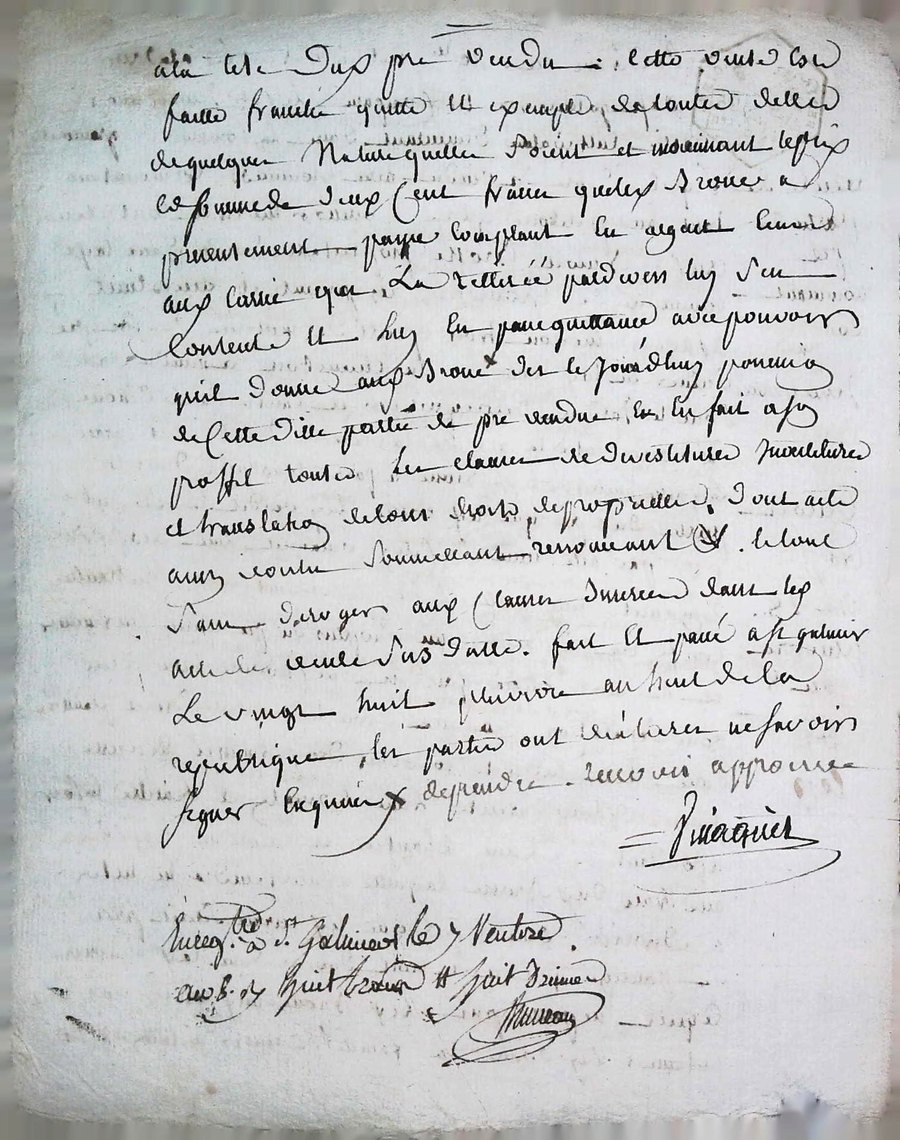 a la tete dux pre vendu. cette vente est
faitte franche quitte et exempte de toutes dettes
de quelques Nature quelles soient et moienant le prix
et somme de deux Cent francs que lex Broue a
presentement payé comptant en argent
aux Cassé qui La rettiree pardevers luy s'en
Contente et luy en passe quittance avec pouvoirs
quil donne aux Broue x des le jourdhuy
de Cette ditte partie de pre vendue et en fait a son
proffit toutes les clauses de devestitures investitures
et translation de tous droits de proprietté. dont acte
ainsy soumettant renonceant &. le tout
sans deroger aux Clauses inserées dans lex
acte de vente sus datté. fait et passé a st galmier
Le vingt huit pluviose an huit de la
republique, les parties ont declarer ne savoirs
signer Enquis x approuvée
Enreg.tré a St Galmier le 7 Ventose
an 8. R huit francs et huit